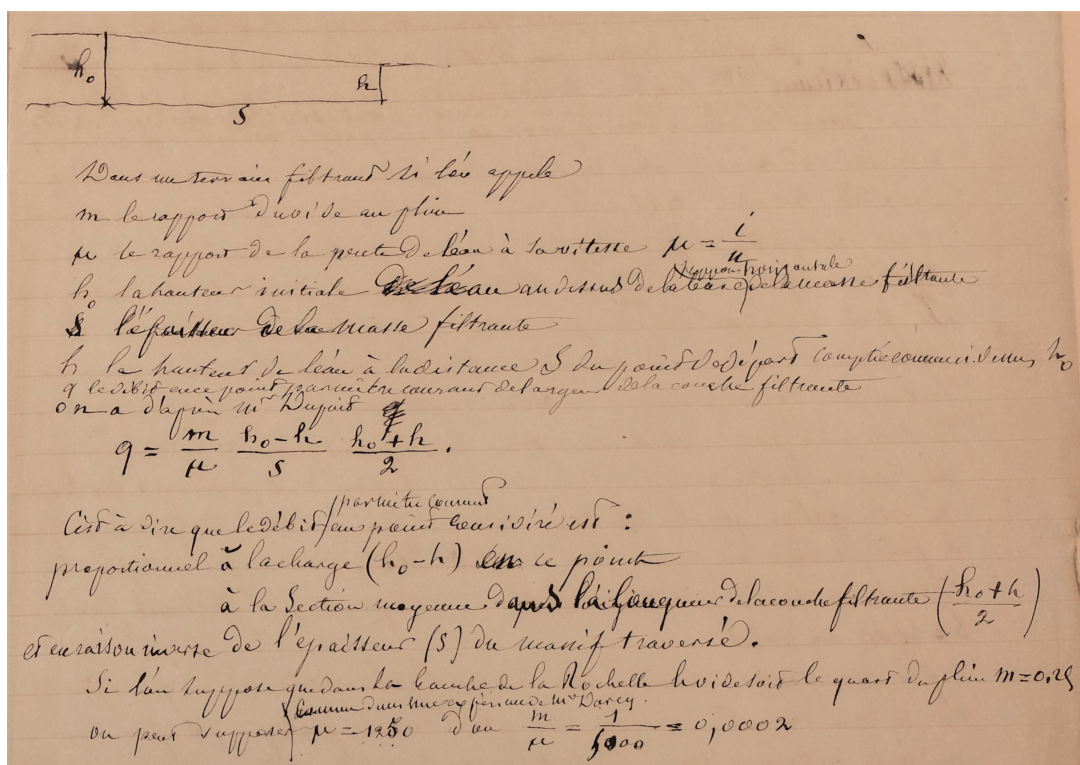 h₀ h
S
Dans un terrain filtrant si l'on appele
m le rapport du vide au plein
μ le rapport de la pente de l'eau à sa vitesse μ = i/u
supposée horizontale
h₀ la hauteur initiale de l'eau au dessus de la base de la masse filtrante
S l'épaisseur de la masse filtrante
h la hauteur de l'eau à la distance S du point de départ comptée comme ci dessus h₀
q le débit en ce point par mètre courant de largeur de la couche filtrante
on a d'après Mr Dupuit
q = m/μ (h₀-h)/S (h₀+h)/2.
par mètre courant
C'est à dire que le débit au point considéré est :
proportionnel à la charge (h₀-h) en ce point
à la Section moyenne dans la longueur de la couche filtrante (h₀+h/2)
et en raison inverse de l'épaisseur (S) du massif traversé.
Si l'on suppose que dans la de la Rochelle le vide soit le quart du plein m=0,25
comme dans une expérience de Mr Darcy.
on peut supposer μ = 1250 d'ou m/μ = 1/5000 = 0,0002